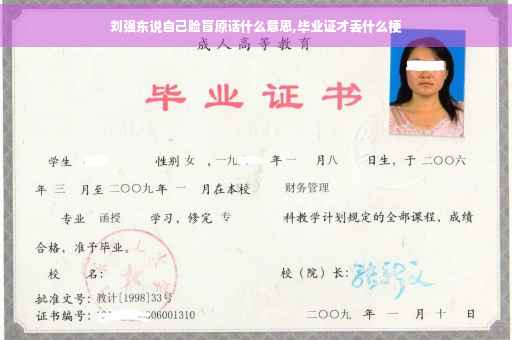 刘强东说自己脸盲原话什么意思,毕业证才丢什么梗
成人高等教育
毕业证书
学生 性别 女 ,一九 年 一 月八 日生，于 二〇〇六
年 三 月至 二〇〇九年 一 月在本校 财务管理
专业 函授 学习，修完 专 科教学计划规定的全部课程，成绩
合格，准予毕业。
校 名： 校（院）长：
批准文号：教计[1998]33号
证书编号： 06001310 二〇〇九 年 一 月 十 日